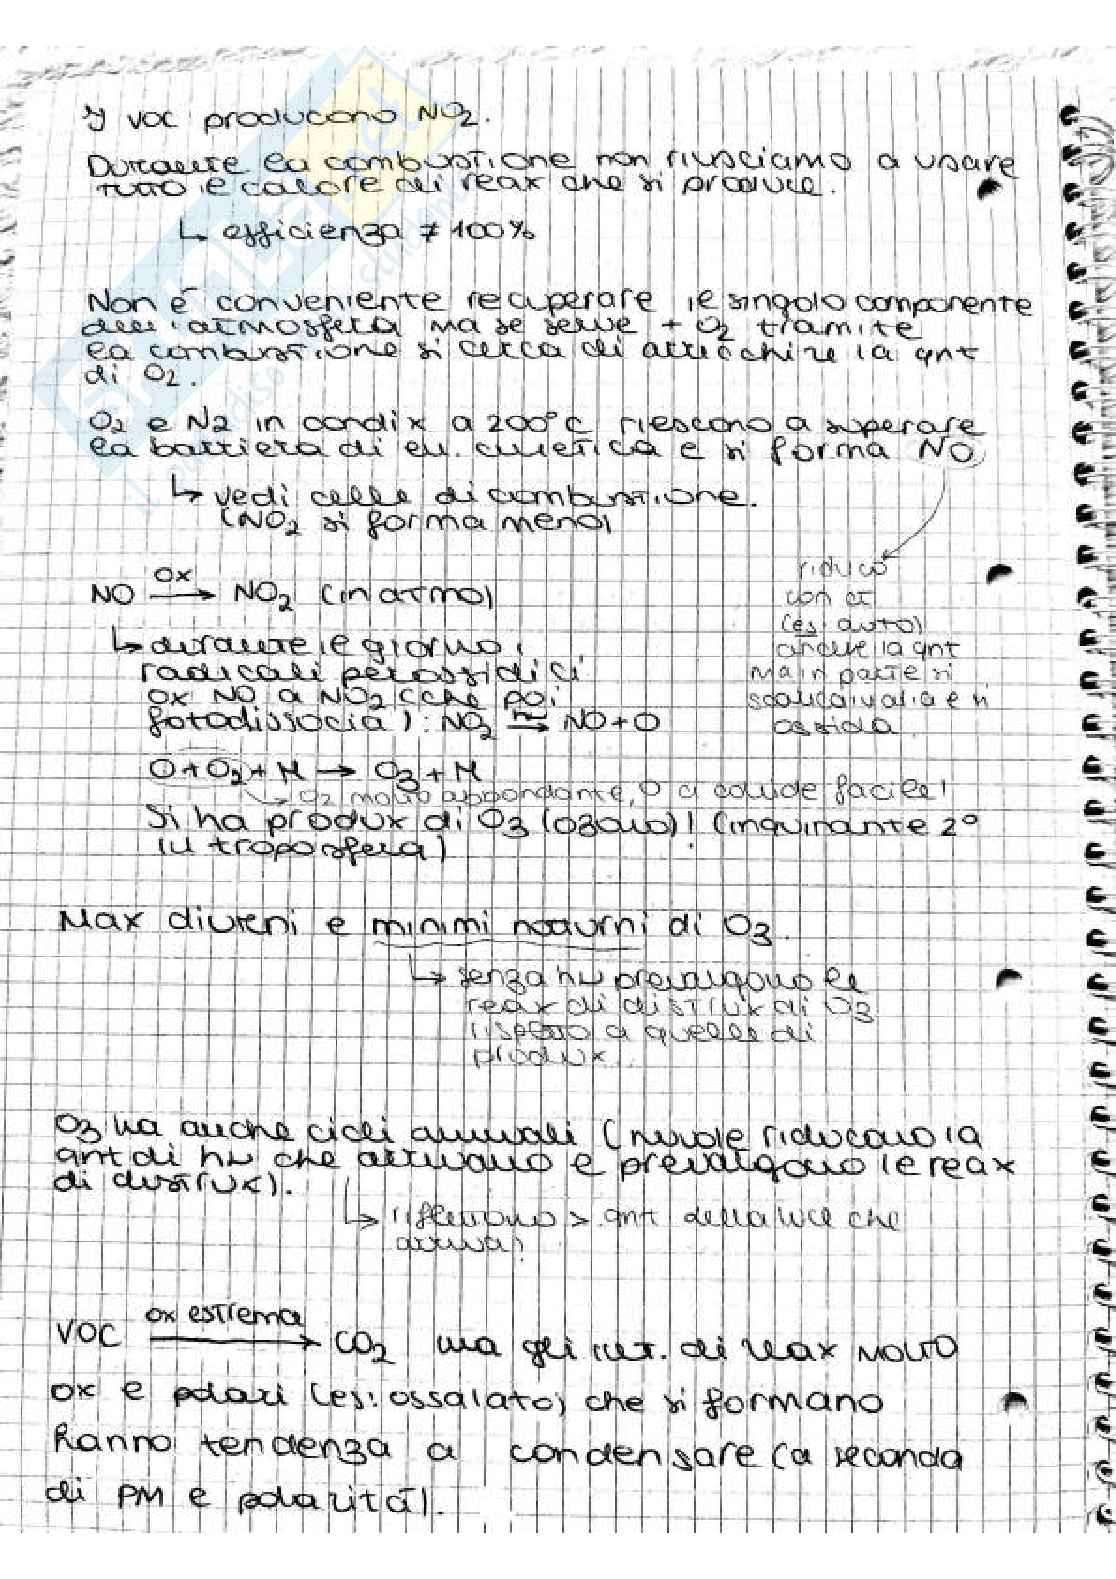 I VOC producono NO2.
Durante la combustione non riusciamo a usare
tutto il calore di reax che si produce.
↳ efficienza ≠ 100%
Non è conveniente recuperare il singolo componente
dell'atmosfera ma se serve + O2 tramite
la combustione si cerca di arricchire la qnt
di O2.
O2 e N2 in condix a 200°C riescono a superare
la barriera di en. cinetica e si forma NO
↳ vedi celle di combustione.
(NO2 si forma meno)
riduco
con
(es: auto)
anche la qnt
ma in parte si
e si
ossida
NO ox→ NO2 (in atmo)
↳ durante il giorno:
radicali perossidici
ox NO a NO2 (che poi
fotodissocia): NO2 → NO + O
O + O2 + M → O3 + M
↳ O2 molto abbondante, O ci collide facile!
Si ha produx di O3 (ozono)! (inquinante 2°
in troposfera)
Max diurni e minimi notturni di O3.
↳ senza hν prevalgono le
reax di distrux di O3
rispetto a quelle di
produx.
O3 ha anche cicli annuali (nuvole riducono la
qnt di hν che arrivano e prevalgono le reax
di distrux).
↳ riflettono > qnt della luce che
arriva!
VOC ox estrema→ CO2 ma gli int. di reax molto
ox e polari (es: ossalato) che si formano
hanno tendenza a condensare (a seconda
di PM e polarità).